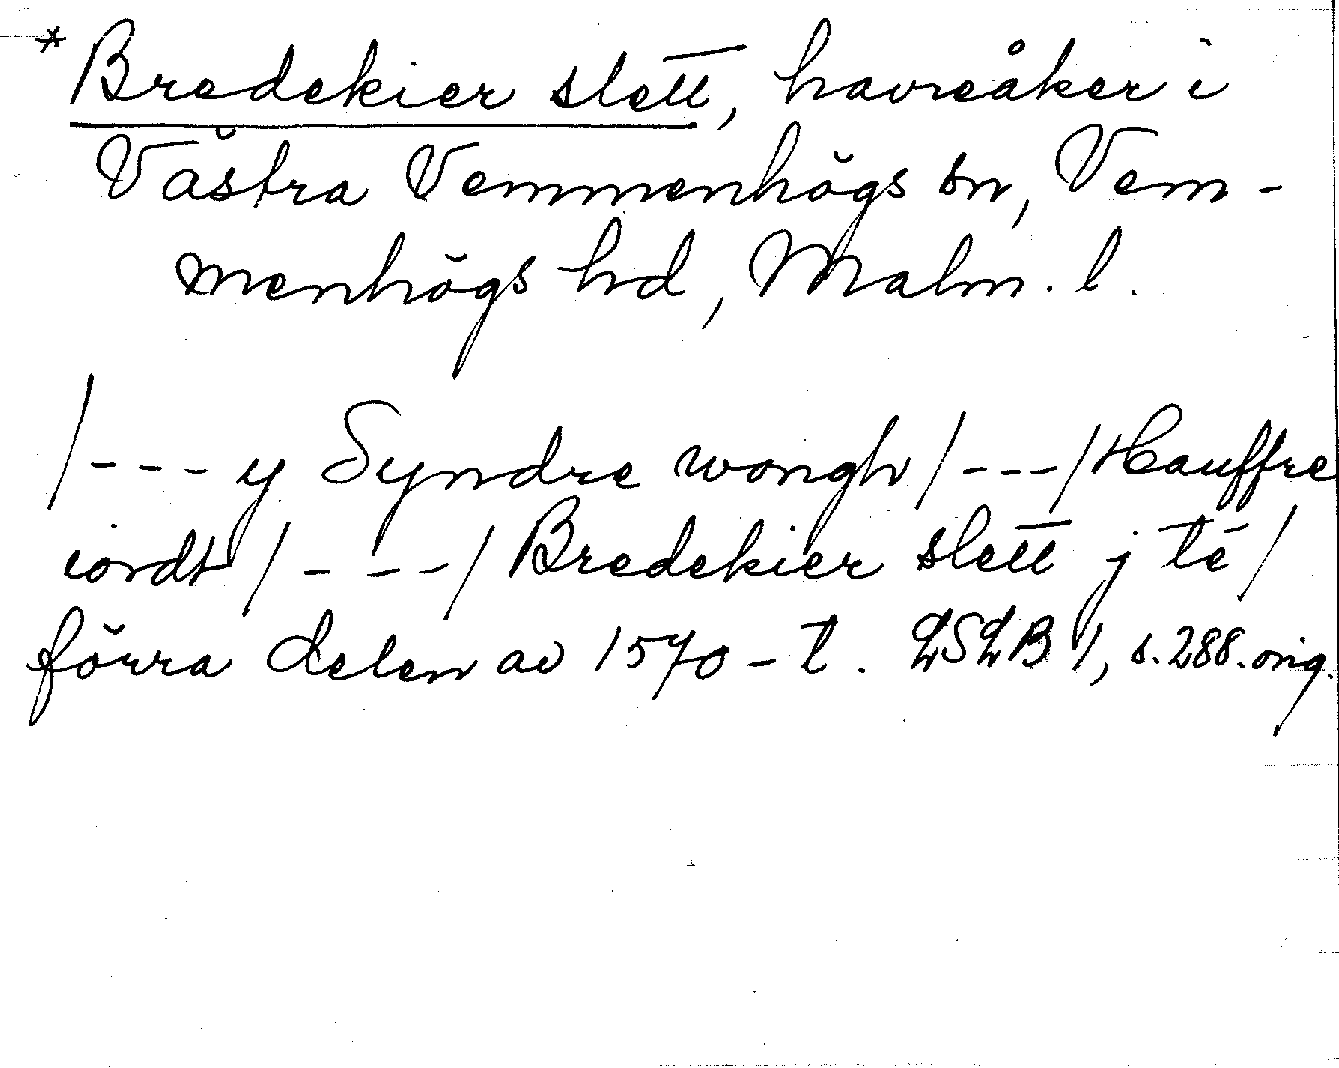 * Bredekier slett, havreåker i
Västra Vemmenhögs sn, Vem-
menhögs hd, Malm. l.
/--- y Syndre wongh /---/ Hauffre
iordt /---/ Bredekier slett j té /
förra delen av 1570-t. LSLB 1, s. 288. orig.